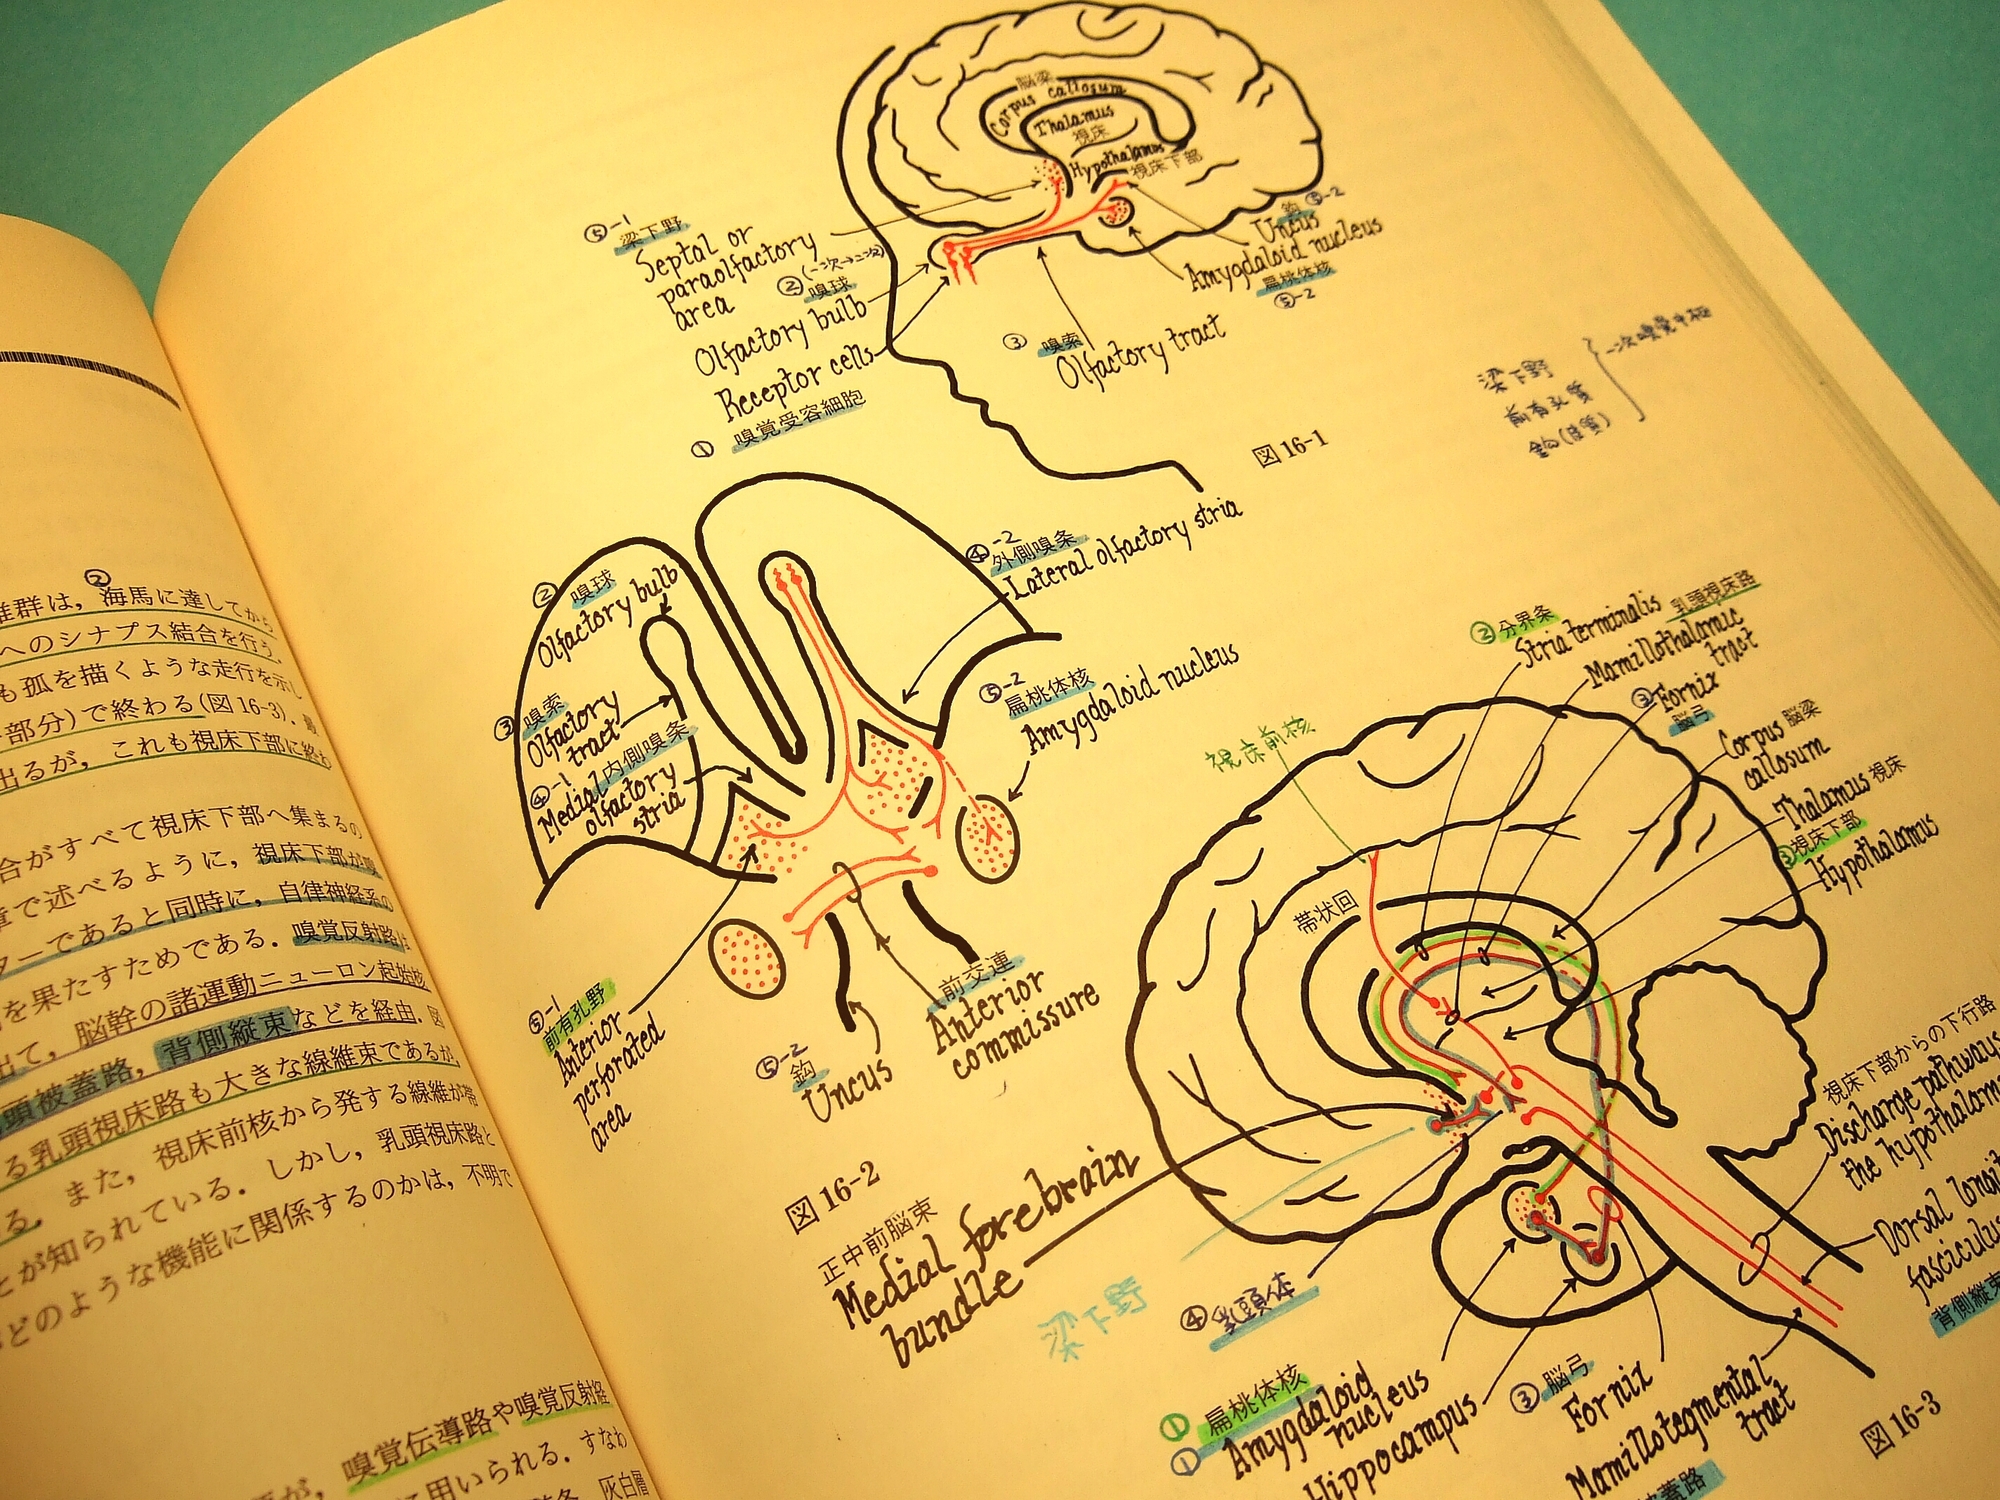 ②
維群は，海馬に達してから
へのシナプス結合を行う．
も孤を描くような走行を示し
部分)で終わる(図16-3)．
出るが，これも視床下部に終わ
合がすべて視床下部へ集まるの
章で述べるように，視床下部が
ターであると同時に，自律神経系の
を果たすためである．嗅覚反射路は
出て，脳幹の諸運動ニューロン起始核
頭被蓋路，背側縦束などを経由．図
る乳頭視床路も大きな線維束であるが，
る．また，視床前核から発する線維が帯
とが知られている．しかし，乳頭視床路と
どのような機能に関係するのかは，不明で
が，嗅覚伝導路や嗅覚反射経
に用いられる．すなわ
灰白層
脳梁
Corpus callosum
Thalamus
視床
Hypothalamus
視床下部
⑤-1
梁下野
Septal or
paraolfactory
area
②(一次→二次)
嗅球
Olfactory bulb
Receptor cells
嗅覚受容細胞
①
鈎 ⑤-2
Uncus
Amygdaloid nucleus
扁桃体核
⑤-2
③ 嗅索
Olfactory tract
図16-1
梁下野
前有孔質
鈎(皮質)
一次嗅覚中枢
② 嗅球
Olfactory bulb
③ 嗅索
Olfactory
tract
④-1
Medial 内側嗅条
olfactory
stria
④-2
外側嗅条
Lateral olfactory stria
⑤-2
扁桃体核
Amygdaloid nucleus
⑤-1
前有孔野
Anterior
perforated
area
⑤-2
鈎
Uncus
前交連
Anterior
commissure
図16-2
② 分界条
Stria terminalis
乳頭視床路
Mamillothalamic
tract
③ Fornix
脳弓
Corpus 脳梁
callosum
Thalamus 視床
③視床下部
Hypothalamus
視床前核
帯状回
視床下部からの下行路
Discharge pathways
the hypothalam
Dorsal longit
fasciculus
背側縦束
正中前脳束
Medial forebrain
bundle
梁下野
④ 乳頭体
① 扁桃体核
① Amygdaloid
nucleus
Hippocampus
③ 脳弓
Fornix
Mamillotegmental
tract
被蓋路
図16-3